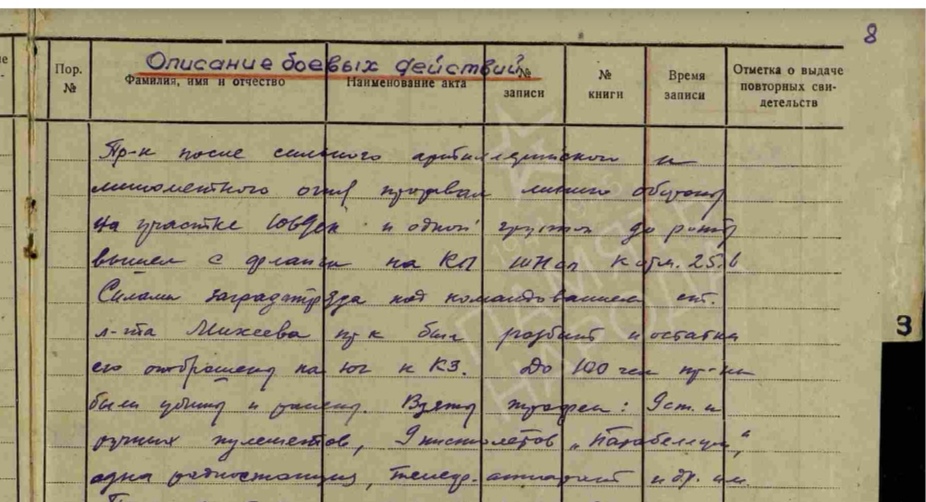 8
Описание боевых действий
Пор. №
Фамилия, имя и отчество
Наименование акта
№ записи
№ книги
Время записи
Отметка о выдаче повторных сви-
детельств
Пр-к после сильного артиллерийского и
минометного огня прорвал линию обороны
на участке и одной группой до роты
вышел с фланга на КП к отм. 25.6
Силами заградотряда под командованием ст.
л-та Михеева пр-к был разбит и остатки
его отброшены на юг к КЗ. До 100 чел пр-ка
были убиты и ранены. Взяты трофеи: 9 ст. и
ручных пулеметов, 9 пистолетов „Парабеллум",
одна радиостанция, телеф. аппарат и др. им.
З